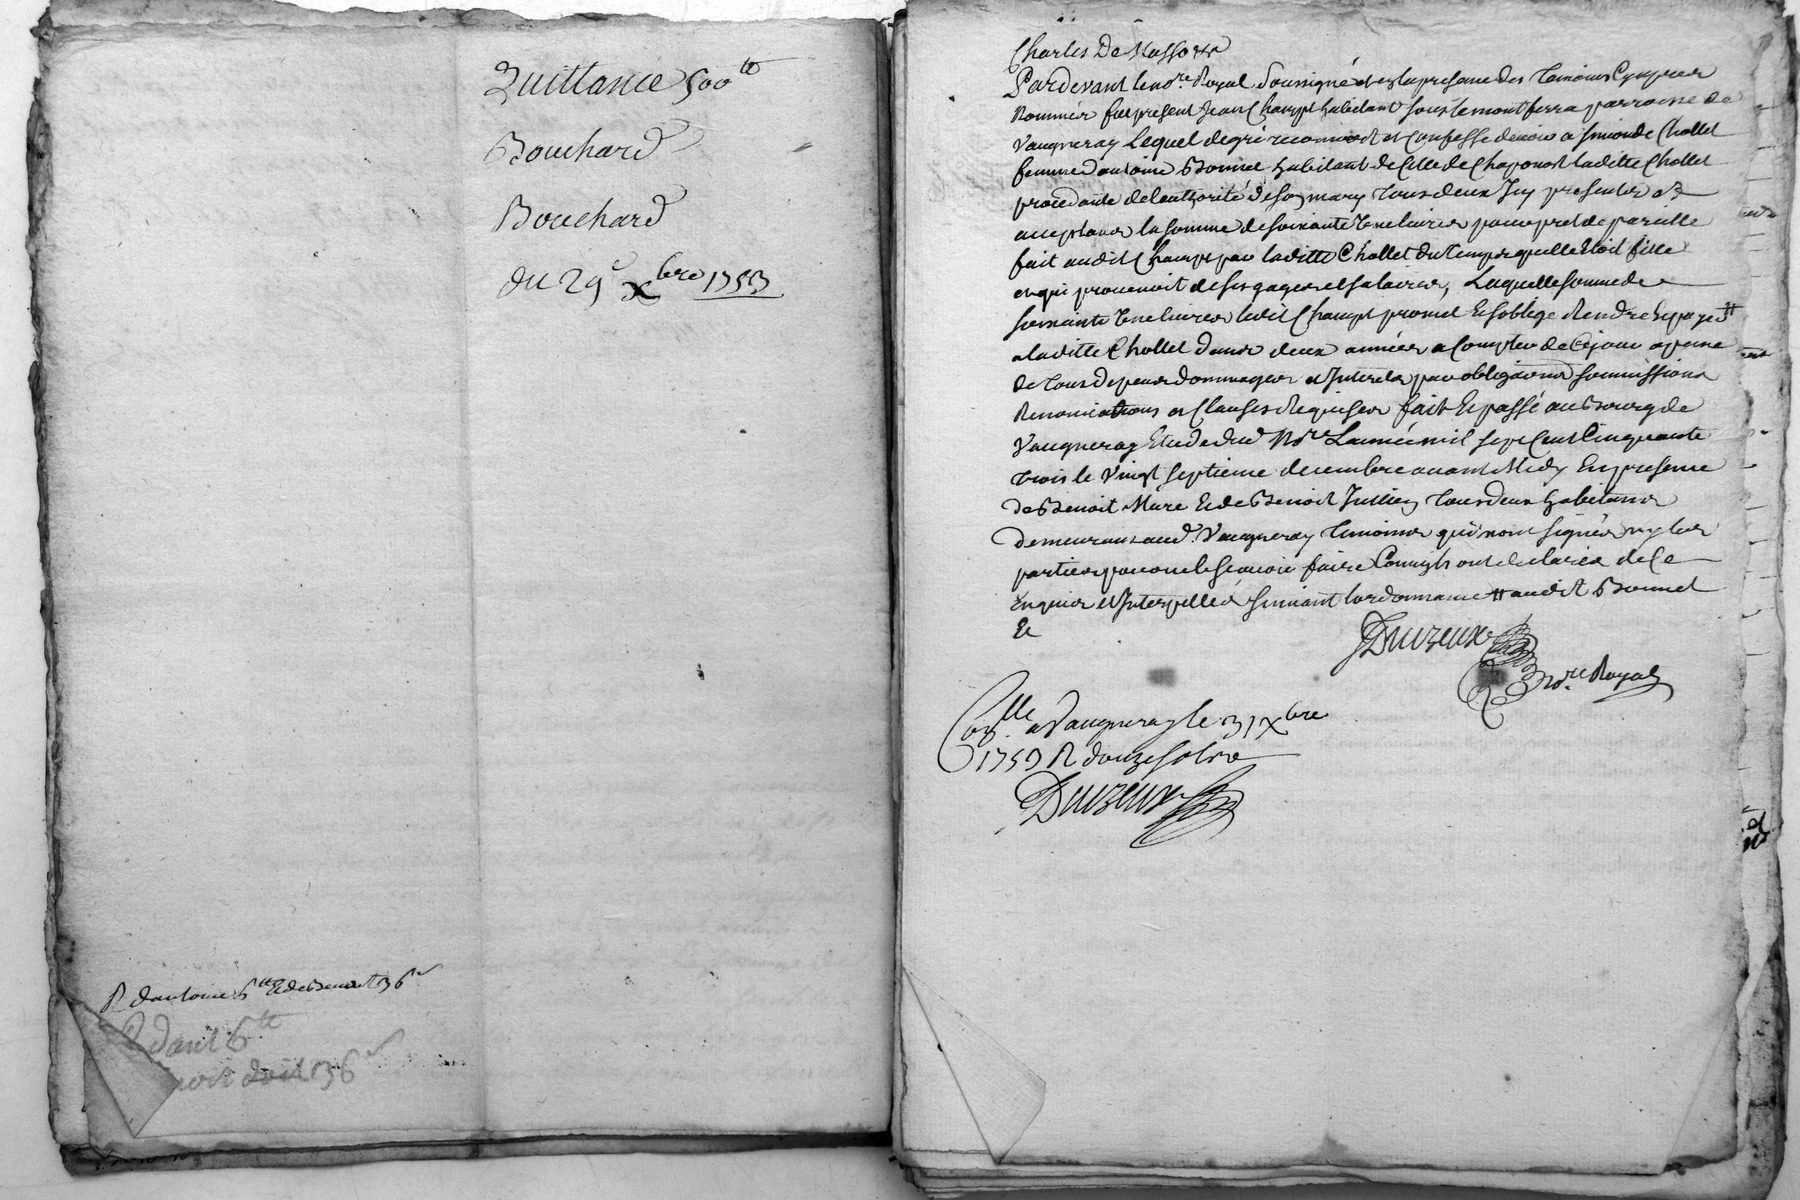 Quittance 500 tt
Bouchard
Bouchard
du 29e Xbre 1753
R d'antoine 6 tt Et de Benoit 36 s
R dant 6 tt
noit doit 36 s
Charles De Masso
Pardevant le no.re Royal Soussigné et en la presance des Temoins Cyapres
Nommés fut present Jean Champt habitant sous le montferra parroisse de
Vaugneray Lequel degré reconnoit et Confesse devoir a Simonde Chollet
femme dantoine Bonnet habitant de Celle de Chaponost laditte Chollet
procedante de lauthorité de son mary tous deux Icy presents et
acceptans la somme de soixante Une livres pour pret de pareille
fait audit Champt par laditte Chollet du temps quelle Etoit fille
et qui provenoit de ses gages et salaires, Laquelle somme de
soixante Une livres ledit Champt promet Et soblige Rendre Et payer #
a laditte Chollet dans deux années a Compter de Cejour a peine
de tous depens dommages et Interets par obligations soumissions
Renonciations et Clauses Requises fait Et passé au Bourg de
Vaugneray Etude dud. No.re Lan mil sept Cent Cinquante
trois le Vingt septieme decembre avant Midy En presence
de Benoit Mure Et de Benoit Jullien tous deux habitans
demeurans aud. Vaugneray Temoins qui nont signés ny les
parties pour ne le scavoir faire Comme ils ont declarés de Ce
Enquis et Interpellés suivant lordonnance # audit Bonnet
Et
Duvzeux
No.re Royal
Con.lle a Vaugneray le 31 Xbre
1753 R douze sols
Duvzeux